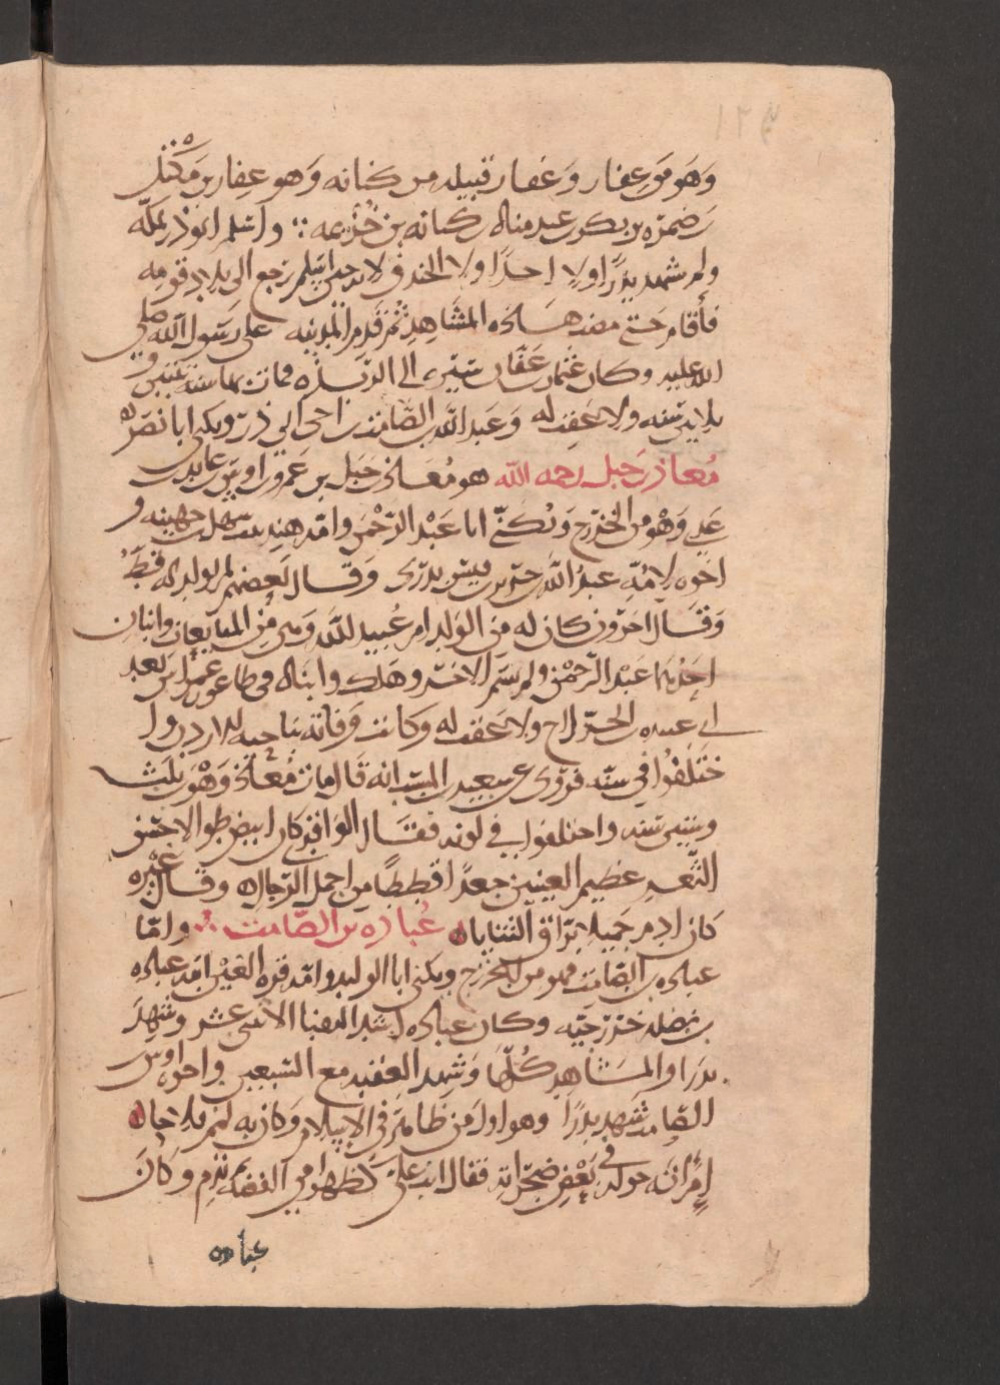 وهو من غفار وغفار قبيله من كنانه وهو غفار بن
ضمره بن بكر بن عبد مناه بن كنانه بن خزيمه ∴ واسلم ابو ذر بمكه
ولم يشهد بدرا ولا احدا ولا الخندق لانه حين اسلم رجع الى بلاد قومه
فأقام حتى مضت هذه المشاهد ثم قدم المدينه على رسول الله صلى
الله عليه وكان عثمان بن عفان سيره الى الربذه فمات بها سنة اثنتين و
ثلاثين سنه ولا عقب له وعبد الله بن الصامت بن اخى ابى ذر ويكنى ابا نصره
معاذ بن جبل رحمه الله هو معاذ بن جبل بن عمرو بن اوس بن عابد بن
عدى وهو من الخزرج ويكنى ابا عبد الرحمن وامه هند بنت سهل من جهينه و
اخوه لامه عبد الله بن جد بن قيس بدرى وقال بعضهم لم يولد له قط
وقال اخرون كان له من الولد ام عبد الله وهى من المبايعات وابنان
احدهما عبد الرحمن ولم يسم الاخر وهلك وابناه فى طاعون عمواس بعد
ابى عبيده بن الجراح ولا عقب له وكانت وفاته بناحيه الاردن وا
ختلفوا فى سنه فروى عن سعيد بن المسيب انه قال مات معاذ وهو بن ثلث
وثلثين سنه واختلفوا فى لونه فقال الواقدى كان ابيض طوالا حسن
الثغر عظيم العينين جعدا قططا من اجمل الرجال وقال غيره
كان ادم جميلا براق الثنايا عباده بن الصامت ∴ واما
عباده بن الصامت فهو من الخزرج ويكنى ابا الوليد وامه قره العين ابنه عباده
بن نضله خزرجيه وكان عباده احد النقبا الاثنى عشر وشهد
بدرا والمشاهد كلها وشهد العقبه مع السبعين واخوه اوس بن
الصامت شهد بدرا وهو اول من ظاهر فى الاسلام وكان به لمم فلاحا
امراته خوله فى بعض ضجراته فقال انت على كظهر امى ثم ندم وكان
عباده